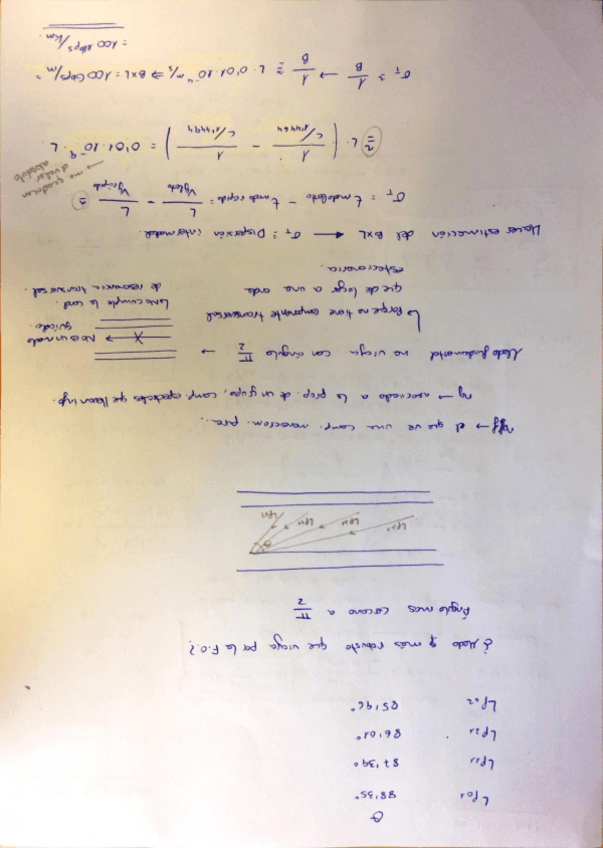 θ
Lp01 88,35°
Lp11 87,39°
Lp21 86,01°
Lp02 85,96°
¿Modo y más robusto que viaja por la F.O.?
Ángulo más cercano a π/2
Lp21 Lp11
θ
neff → el que ve una comp. monocrom. pura.
ng → asociado a la prop. de un grupo, comp. espectrales que llevan inf.
Modo fundamental no viaja con ángulo π/2 → X No es un modo guiado.
↳ Porque no tiene componente transversal que de lugar a una onda estacionaria.
No cumple la cond. de resonancia transversal.
Hacer estimación del BxL ← σT = Dispersión intermodal.
σT = t modo lento - t modo rápido = L/Vg lento - L/Vg rápido =
→ me quedaron el valor absoluto
= L · ( 1/(c/1'4464) - 1/(c/1'4494) ) = 0'01·10⁻⁹ · L
σT ≈ 1/B → 1/B = L · 0'01·10⁻⁹ s/m ⇒ BxL = 100 Gbps/m =
= 100 Mbps/km.